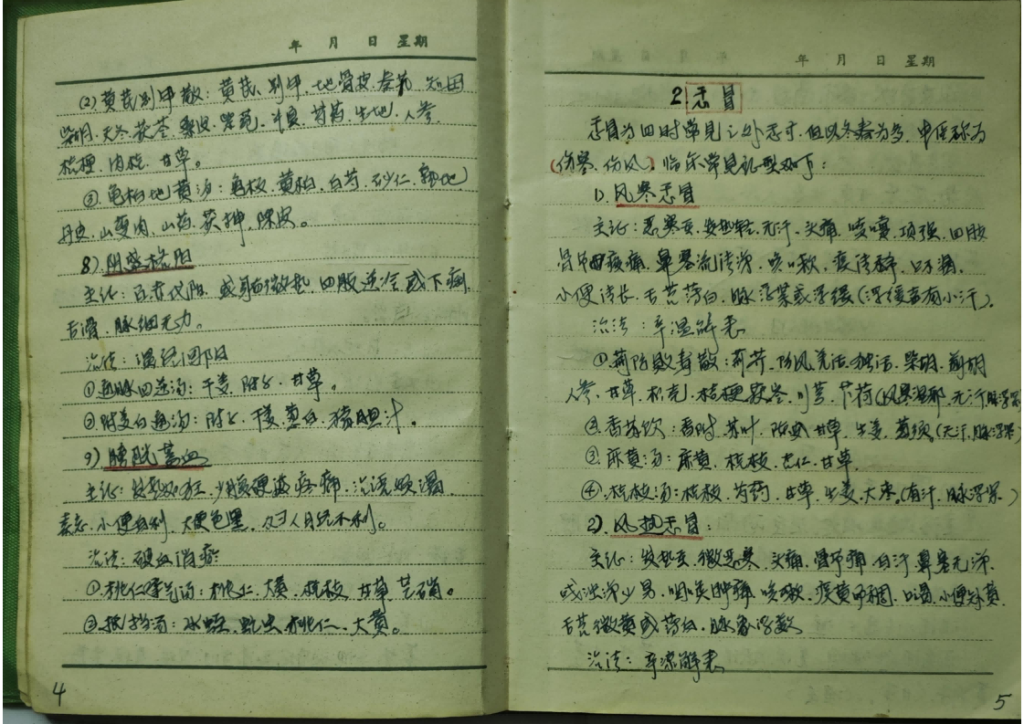 年 月 日 星期
(2) 黄芪别甲散：黄芪、别甲、地骨皮、秦艽、知母
柴胡、天冬、茯苓、桑皮、紫苑、半夏、芍药、生地、人参、
桔梗、肉桂、甘草。
③ 龟柏地黄汤：龟板、黄柏、白芍、砂仁、熟地
丹皮、山萸肉、山药、茯神、陈皮。
8) 阴盛格阳
主证： 四肢逆冷或下痢，
舌滑、脉细无力。
治法：温经回阳
① 通脉四逆汤：干姜、附子、甘草。
② 附姜白通汤：附子、干姜、葱白、猪胆汁。
9) 膀胱蓄血
主证：发热如狂、少腹硬满疼痛、治谵烦渴、
小便自利、大便色黑、及妇人月经不利。
治法：破血消瘀
① 桃仁承气汤：桃仁、大黄、桂枝、甘草、芒硝。
② 抵挡汤：水蛭、虻虫、桃仁、大黄。
4
年 月 日 星期
2. 感冒
感冒为四时常见之外感病，但以冬春为多，中医称为
(伤寒、伤风)。临床常见证型如下：
1). 风寒感冒
主证：恶寒重、发热轻、无汗、头痛、咳嚏、项强、四肢
骨节酸痛、鼻塞流清涕、咳嗽、痰清稀、口不渴、
小便清长、舌苔薄白、脉浮紧或浮缓(浮缓者有小汗)。
治法：辛温解表
① 荆防败毒散：荆芥、防风、羌活、独活、柴胡、前胡
人参、甘草、枳壳、桔梗、茯苓、川芎、薄荷(风寒湿郁，无汗，脉浮紧)
② 香苏饮：香附、苏叶、陈皮、甘草、生姜、葱须(无汗，脉浮紧)
③ 麻黄汤：麻黄、桂枝、杏仁、甘草。
④ 桂枝汤：桂枝、芍药、甘草、生姜、大枣。(有汗、脉浮缓)
2). 风热感冒：
主证：发热重、微恶寒、头痛、骨节痛、自汗、鼻塞无涕
或浊涕少易、咽炎肿痛、咳嗽、痰黄而稠、口渴、小便短黄、
舌苔微黄或薄白、脉象浮数
治法：辛凉解表
5